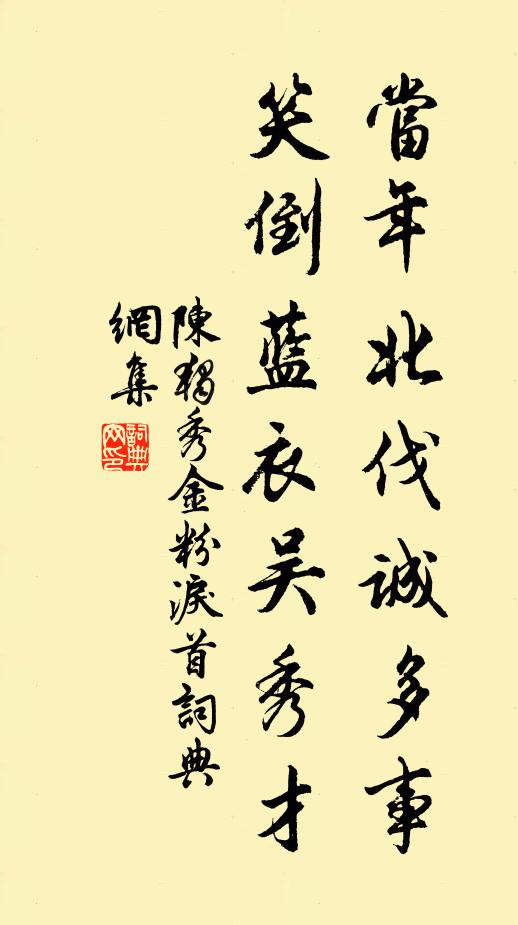 當年北伐誠多事
笑倒藍衣吳秀才
陳獨秀金粉淚首詞典
網集
詞典
网印